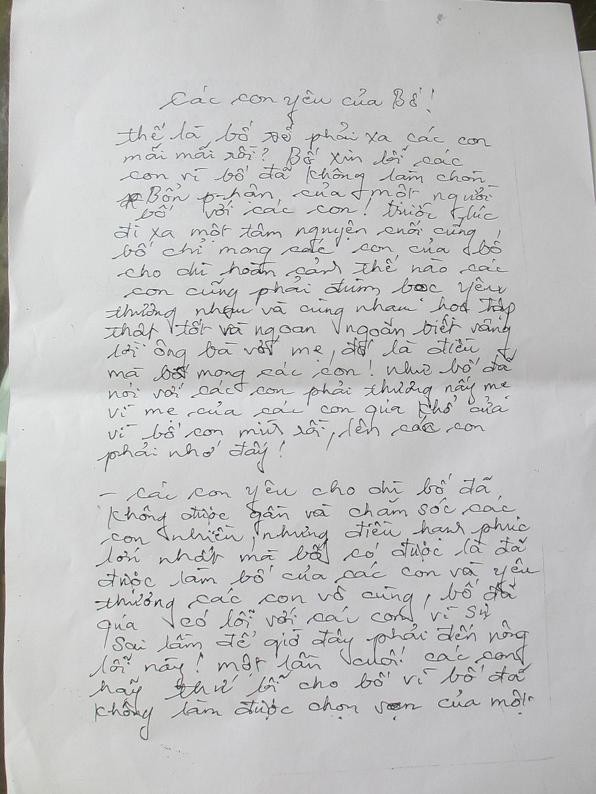 Các con yêu của Bố!
thế là bố sẽ phải xa các con
mãi mãi rồi? Bố xin lỗi các
con vì bố đã không làm chòn
Bổn phận của một người
bố với các con! trước lúc
đi xa một tâm nguyện cuối cùng
bố chỉ mong các con của bố
cho dù hoàn cảnh thế nào các
con cũng phải đùm bọc yêu
thương nhau và cùng nhau học tập
thật tốt và ngoan ngoãn biết vâng
lời ông bà với mẹ, đó là điều
mà bố mong các con! như bố đã
nói với các con phải thương lấy mẹ
vì mẹ của các con qúa khổ cũng
vì bố con mìn rồi, lên các con
phải nhớ đấy!
- các con yêu cho dù bố đã
không được gần và chăm sóc các
con nhiều, nhưng điều hạnh phúc
lớn nhất mà bố có được là đã
được làm bố của các con và yêu
thương các con vô cùng, bố đã
qúa có lỗi với các con vì sự
Sai lầm để giờ đây phải đến nông
lỗi này! một lần cuối các con
hãy thứ lỗi cho bố vì bố đã
không làm được chọn vẹn của một